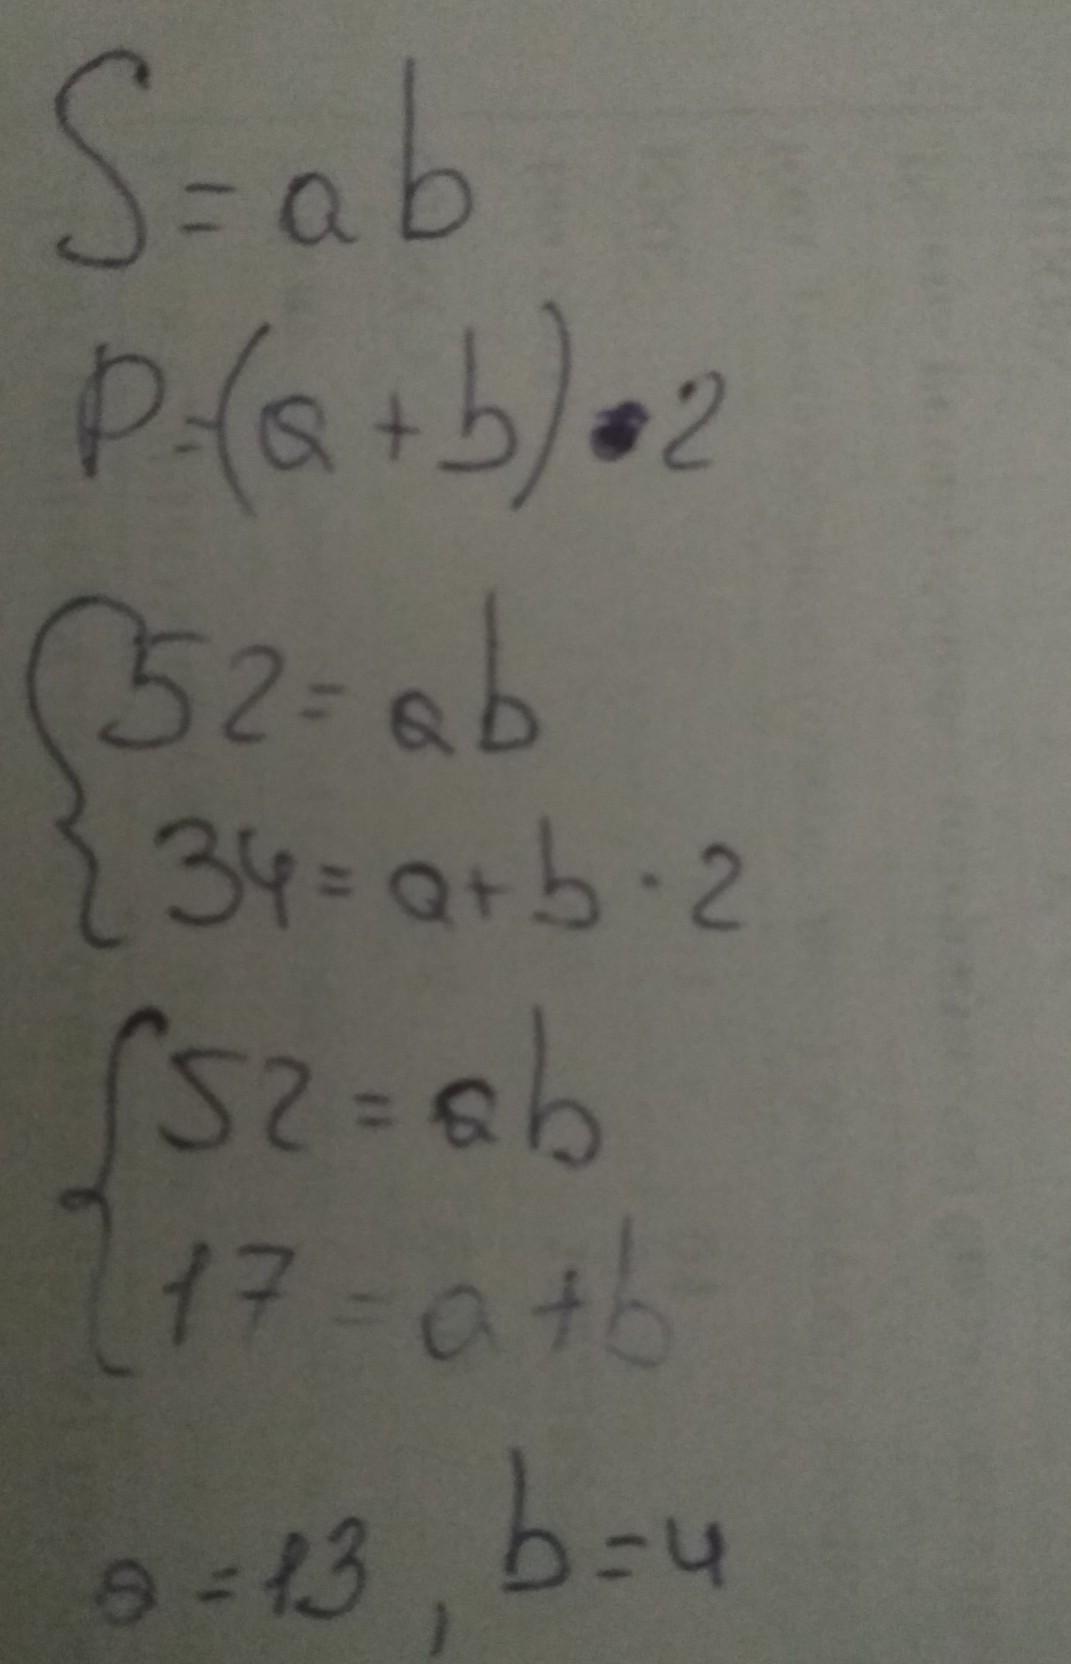 S = ab
P = (a + b) • 2
{ 52 = ab
34 = a + b · 2
{ 52 = ab
17 = a + b
a = 13, b = 4